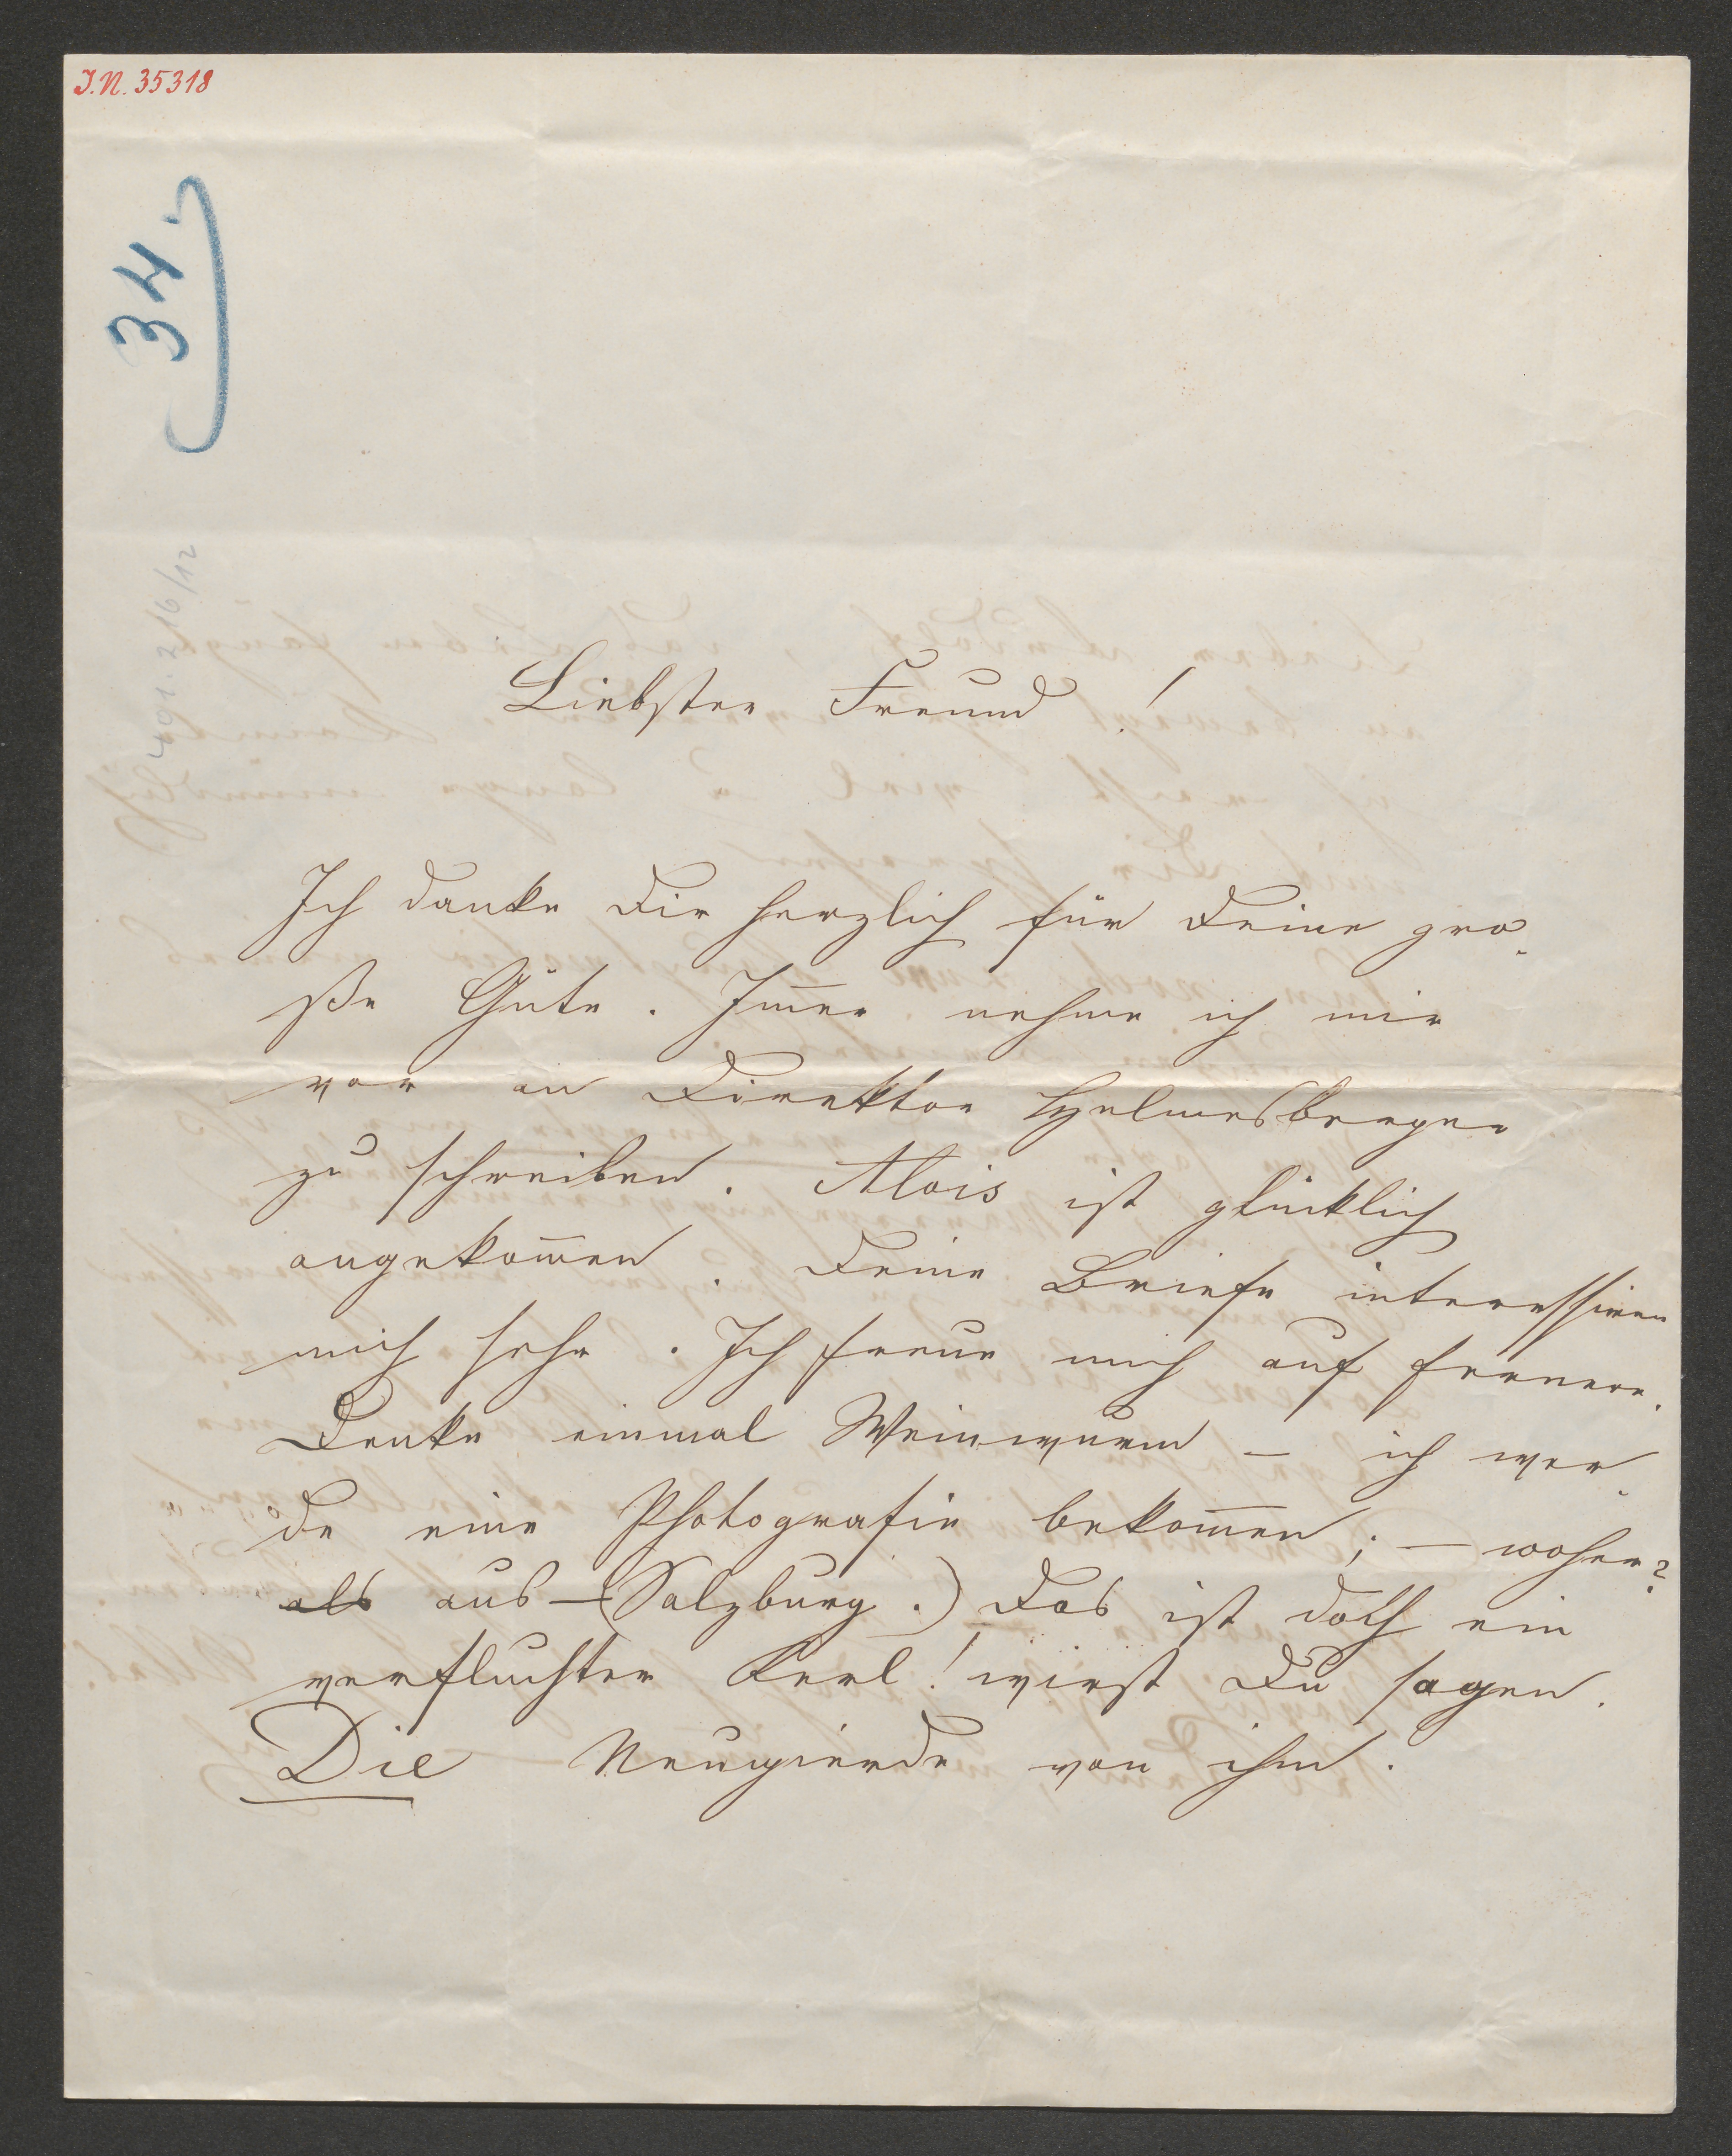 I.N. 35318
34
Liebster Freund!
Ich danke Dir herzlich für Deine gro-
ße Güte. Im̄er nehme ich mir
vor an Direktor Helmesberger
zu schreiben. Alois ist glücklich
angekom̄en. Deine Briefe interessiren
mich sehr. Ich freue mich auf fernere.
Denke einmal Weinwurm – ich wer-
de eine Photografie bekom̄en; – woher?
als aus – (Salzburg.) Das ist doch ein
verfluchter Kerl! wirst Du sagen.
Die Neugierde von ihm.